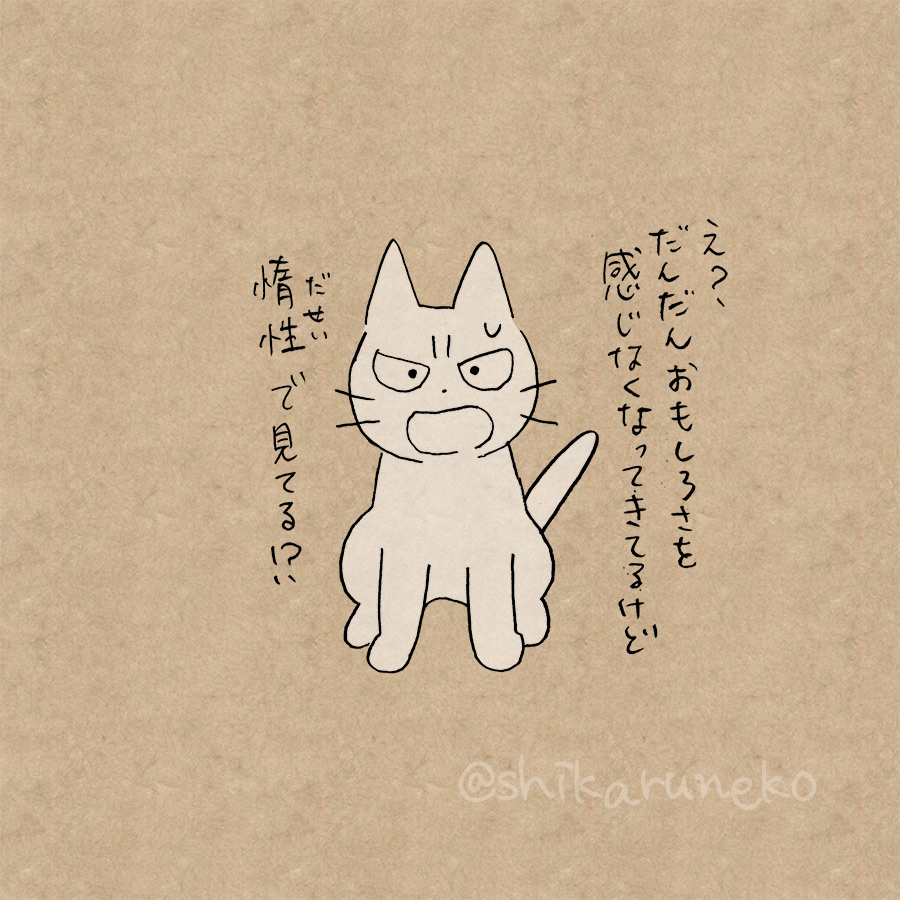 え?、
だんだんおもしろさを
感じなくなってきてるけど
だせい
惰性で見てる!?
@shikaruneko